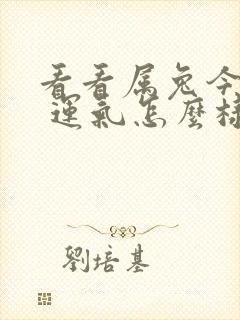 看看属兔今
運氣怎麼樣
劉培基